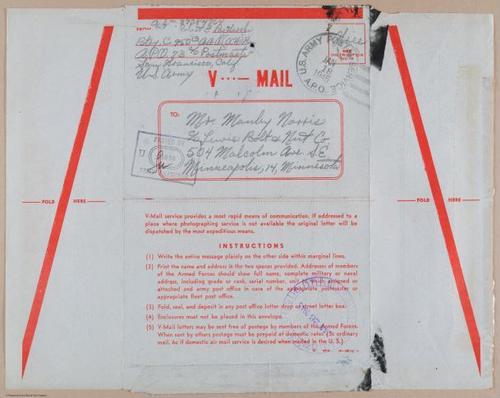 Btry C 950th AAA AW Bn
A.P.O. 73 % Postmaster
San Francisco, Calif
U.S. Army
Free
U.S. ARMY POSTAL SERVICE
A.P.O.
JAN
18
1945
V···— MAIL
TO:
Mr. Manley Norris
% Lewis Bolt & Nut Co
504 Malcolm Ave. S.E
Minneapolis, 14, Minnesota
PASSED BY
FOLD HERE
FOLD HERE
V-Mail service provides a most rapid means of communication. If addressed to a
place where photographing service is not available the original letter will be
dispatched by the most expeditious means.
INSTRUCTIONS
(1) Write the entire message plainly on the other side within marginal lines.
(2) Print the name and address in the two spaces provided. Addresses of members
of the Armed Forces should show full name, complete military or naval
address, including grade or rank, serial number, unit to which assigned or
attached and army post office in care of the appropriate postmaster or
appropriate fleet post office.
(3) Fold, seal, and deposit in any post office letter drop or street letter box.
(4) Enclosures must not be placed in this envelope.
(5) V-Mail letters may be sent free of postage by members of the Armed Forces.
When sent by others postage must be prepaid at domestic rates (3c ordinary
mail, 6c if domestic air mail service is desired when mailed in the U. S.)